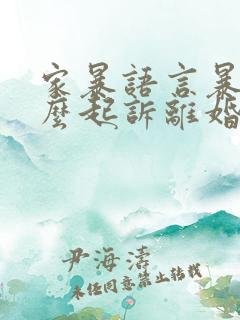 家暴語言暴
麼起訴離婚
尹海濤
未經同意禁止轉載